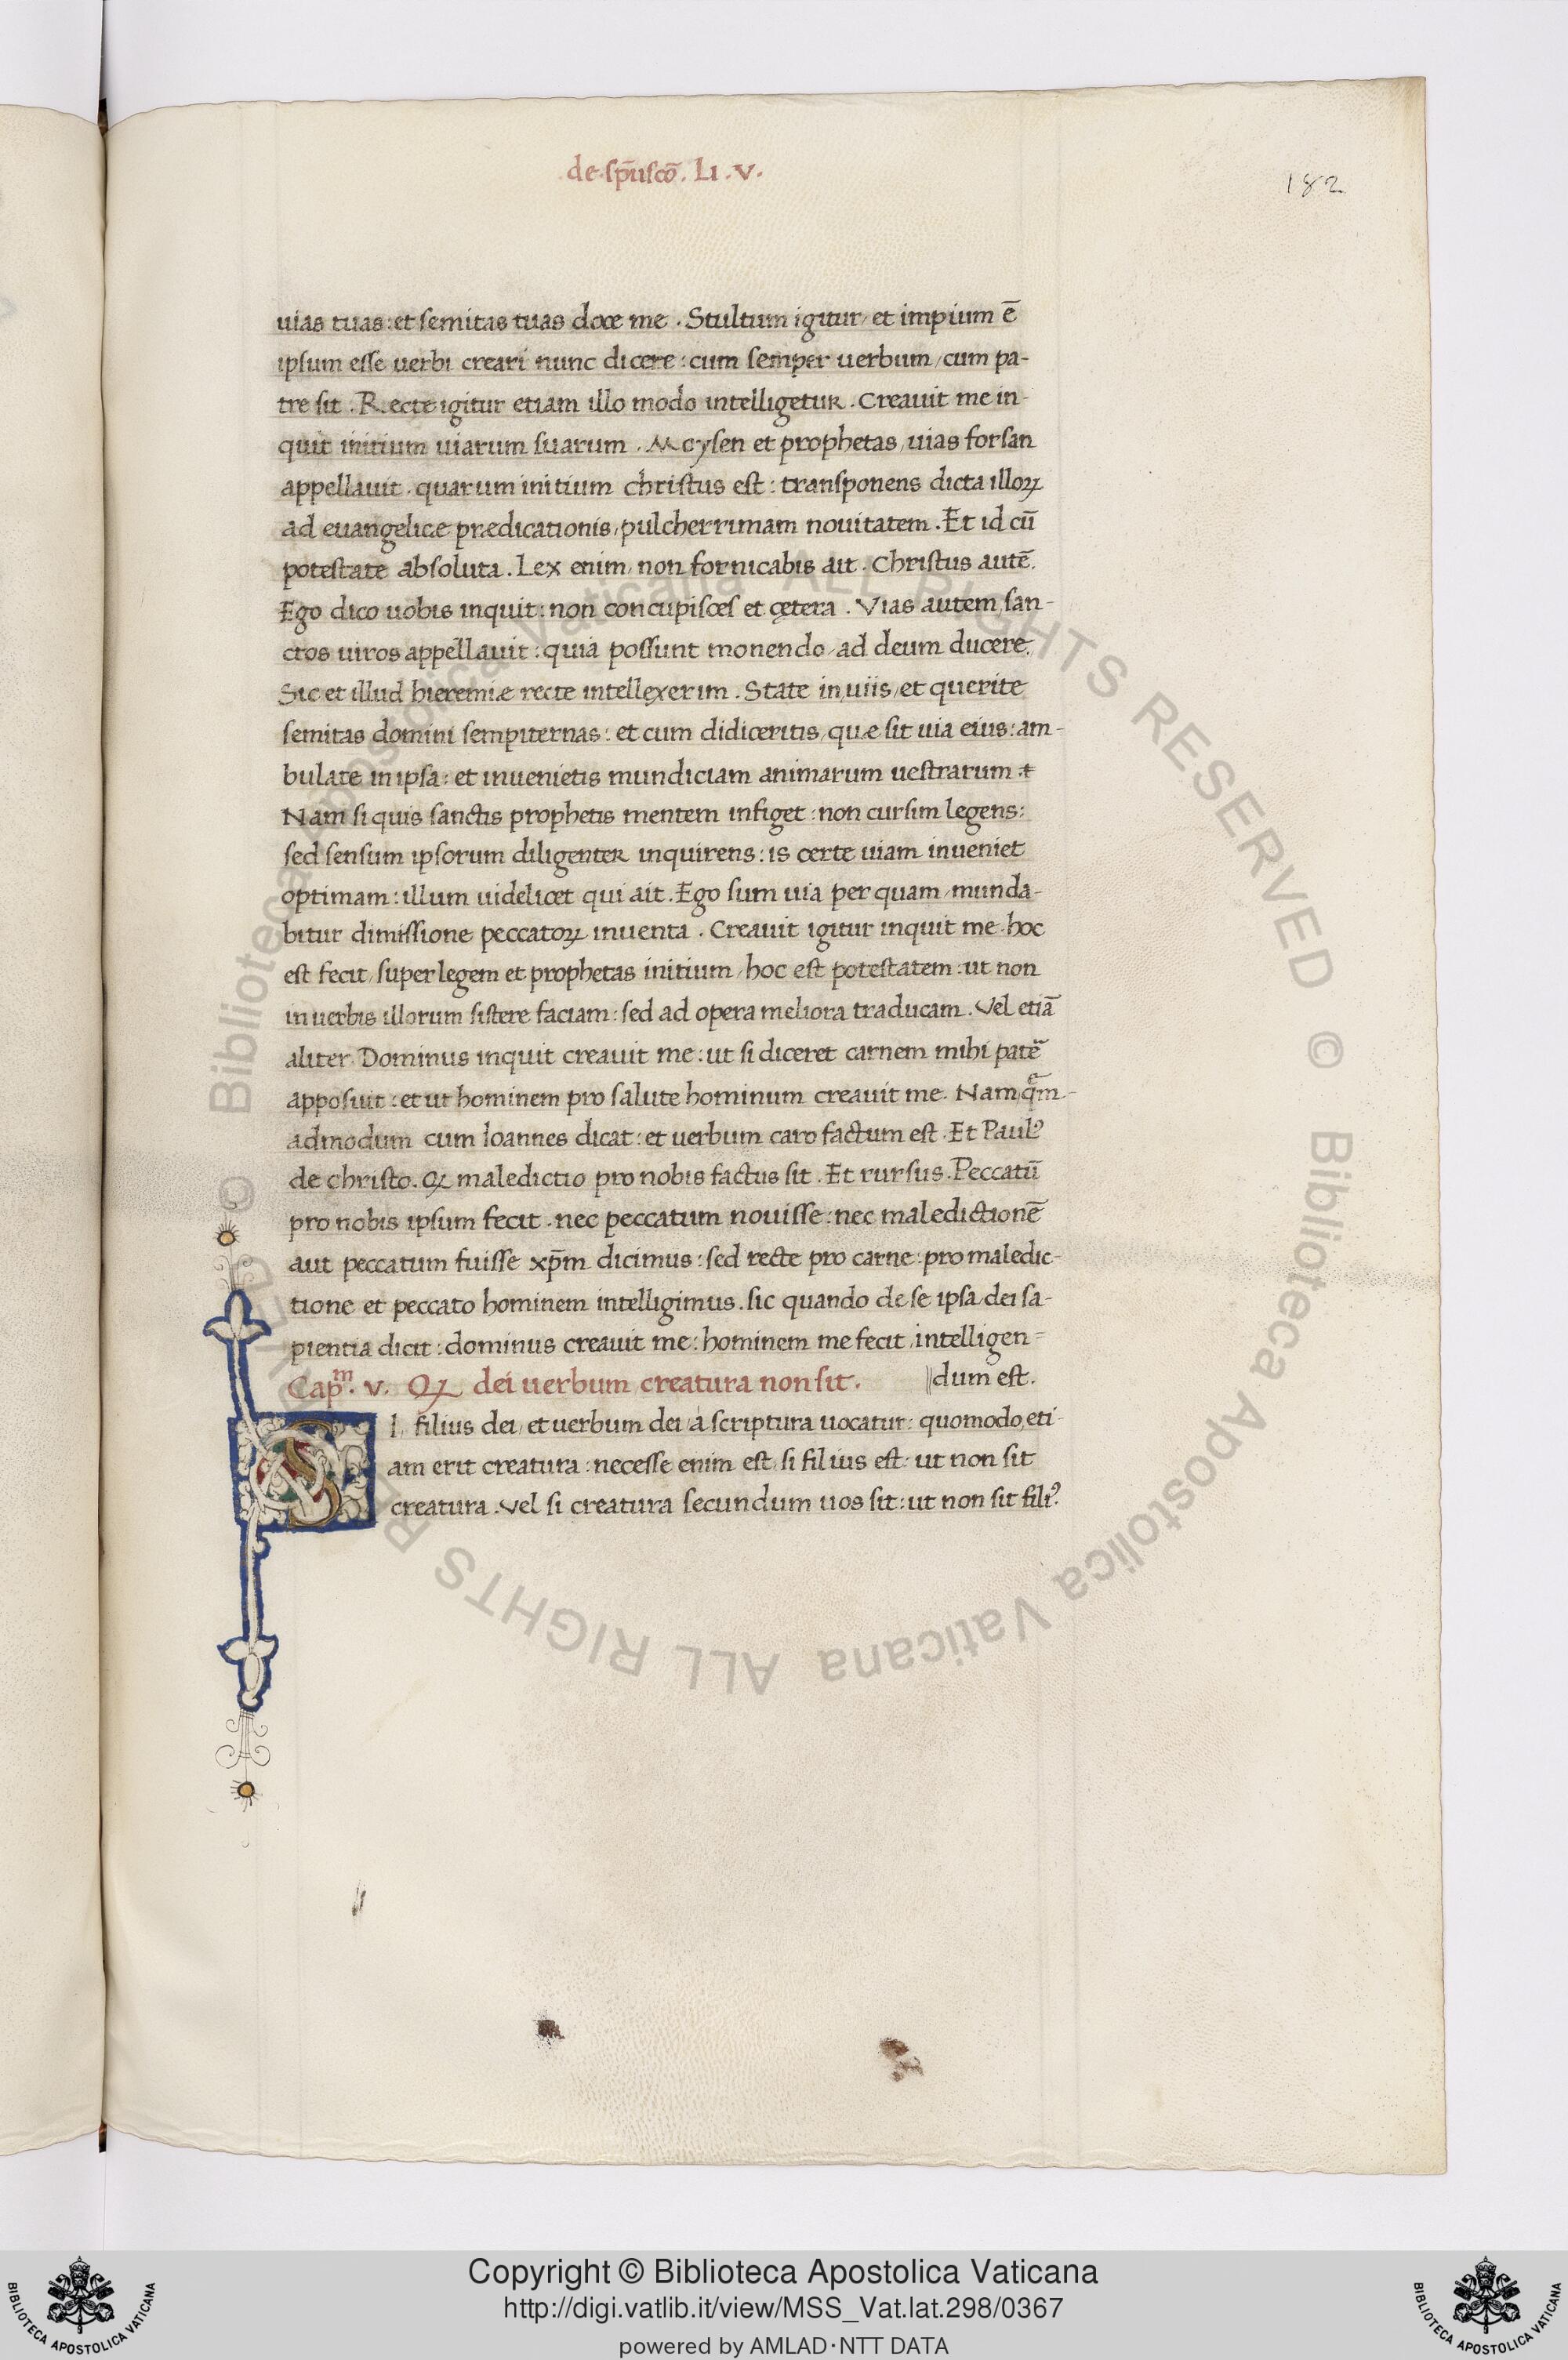 de sp̄u sc̄o. Li. v.
182
uias tuas: et semitas tuas doce me. Stultum igitur, et impium ē
ipsum esse uerbi creari nunc dicere: cum semper uerbum, cum pa-
tre sit. Recte igitur etiam illo modo intelligetur. Creauit me in-
quit initium uiarum suarum. Moysen et prophetas, uias forsan
appellauit. quarum initium christus est: transponens dicta illoꝝ
ad euangelicæ prædicationis, pulcherrimam nouitatem. Et id cū
potestate absoluta. Lex enim, non fornicabis ait. Christus autē.
Ego dico uobis inquit: non concupisces et cętera. Vias autem, san-
ctos uiros appellauit: quia possunt monendo, ad deum ducere.
Sic et illud hieremiæ recte intellexerim. State in uiis, et querite
semitas domini sempiternas: et cum didiceritis, quæ sit uia eius: am-
bulate in ipsa: et inuenietis mundiciam animarum uestrarum.
Nam si quis sanctis prophetis mentem infiget: non cursim legens:
sed sensum ipsorum diligenter inquirens: is certe uiam inueniet
optimam: illum uidelicet qui ait. Ego sum uia per quam, munda-
bitur dimissione peccatoꝝ inuenta. Creauit igitur inquit me. hoc
est fecit, super legem et prophetas initium, hoc est potestatem: ut non
in uerbis illorum sistere faciam: sed ad opera meliora traducam. Vel etiā
aliter. Dominus inquit creauit me: ut si diceret carnem mihi patē
apposuit: et ut hominem pro salute hominum creauit me. Nam q̄m-
admodum cum Ioannes dicat: et uerbum caro factum est. Et Paulꝰ
de christo. Qꝫ maledictio pro nobis factus sit. Et rursus. Peccatū
pro nobis ipsum fecit. nec peccatum nouisse: nec maledictionē
aut peccatum fuisse xp̄m dicimus: sed recte pro carne: pro maledic-
tione et peccato hominem intelligimus. sic quando de se ipsa, dei sa-
pientia dicit: dominus creauit me: hominem me fecit, intelligen=
Capᵐ. v. Qꝫ dei uerbum creatura non sit. ||dum est.
SI filius dei, et uerbum dei, à scriptura uocatur: quomodo, eti-
am erit creatura: necesse enim est, si filius est: ut non sit
creatura. Vel si creatura secundum uos sit: ut non sit filiꝰ.
Copyright © Biblioteca Apostolica Vaticana
http://digi.vatlib.it/view/MSS_Vat.lat.298/0367
powered by AMLAD·NTT DATA
BIBLIOTECA APOSTOLICA VATICANA
BIBLIOTECA APOSTOLICA VATICANA
© Biblioteca Apostolica Vaticana ALL RIGHTS RESERVED © Biblioteca Apostolica Vaticana ALL RIGHTS RESERVED